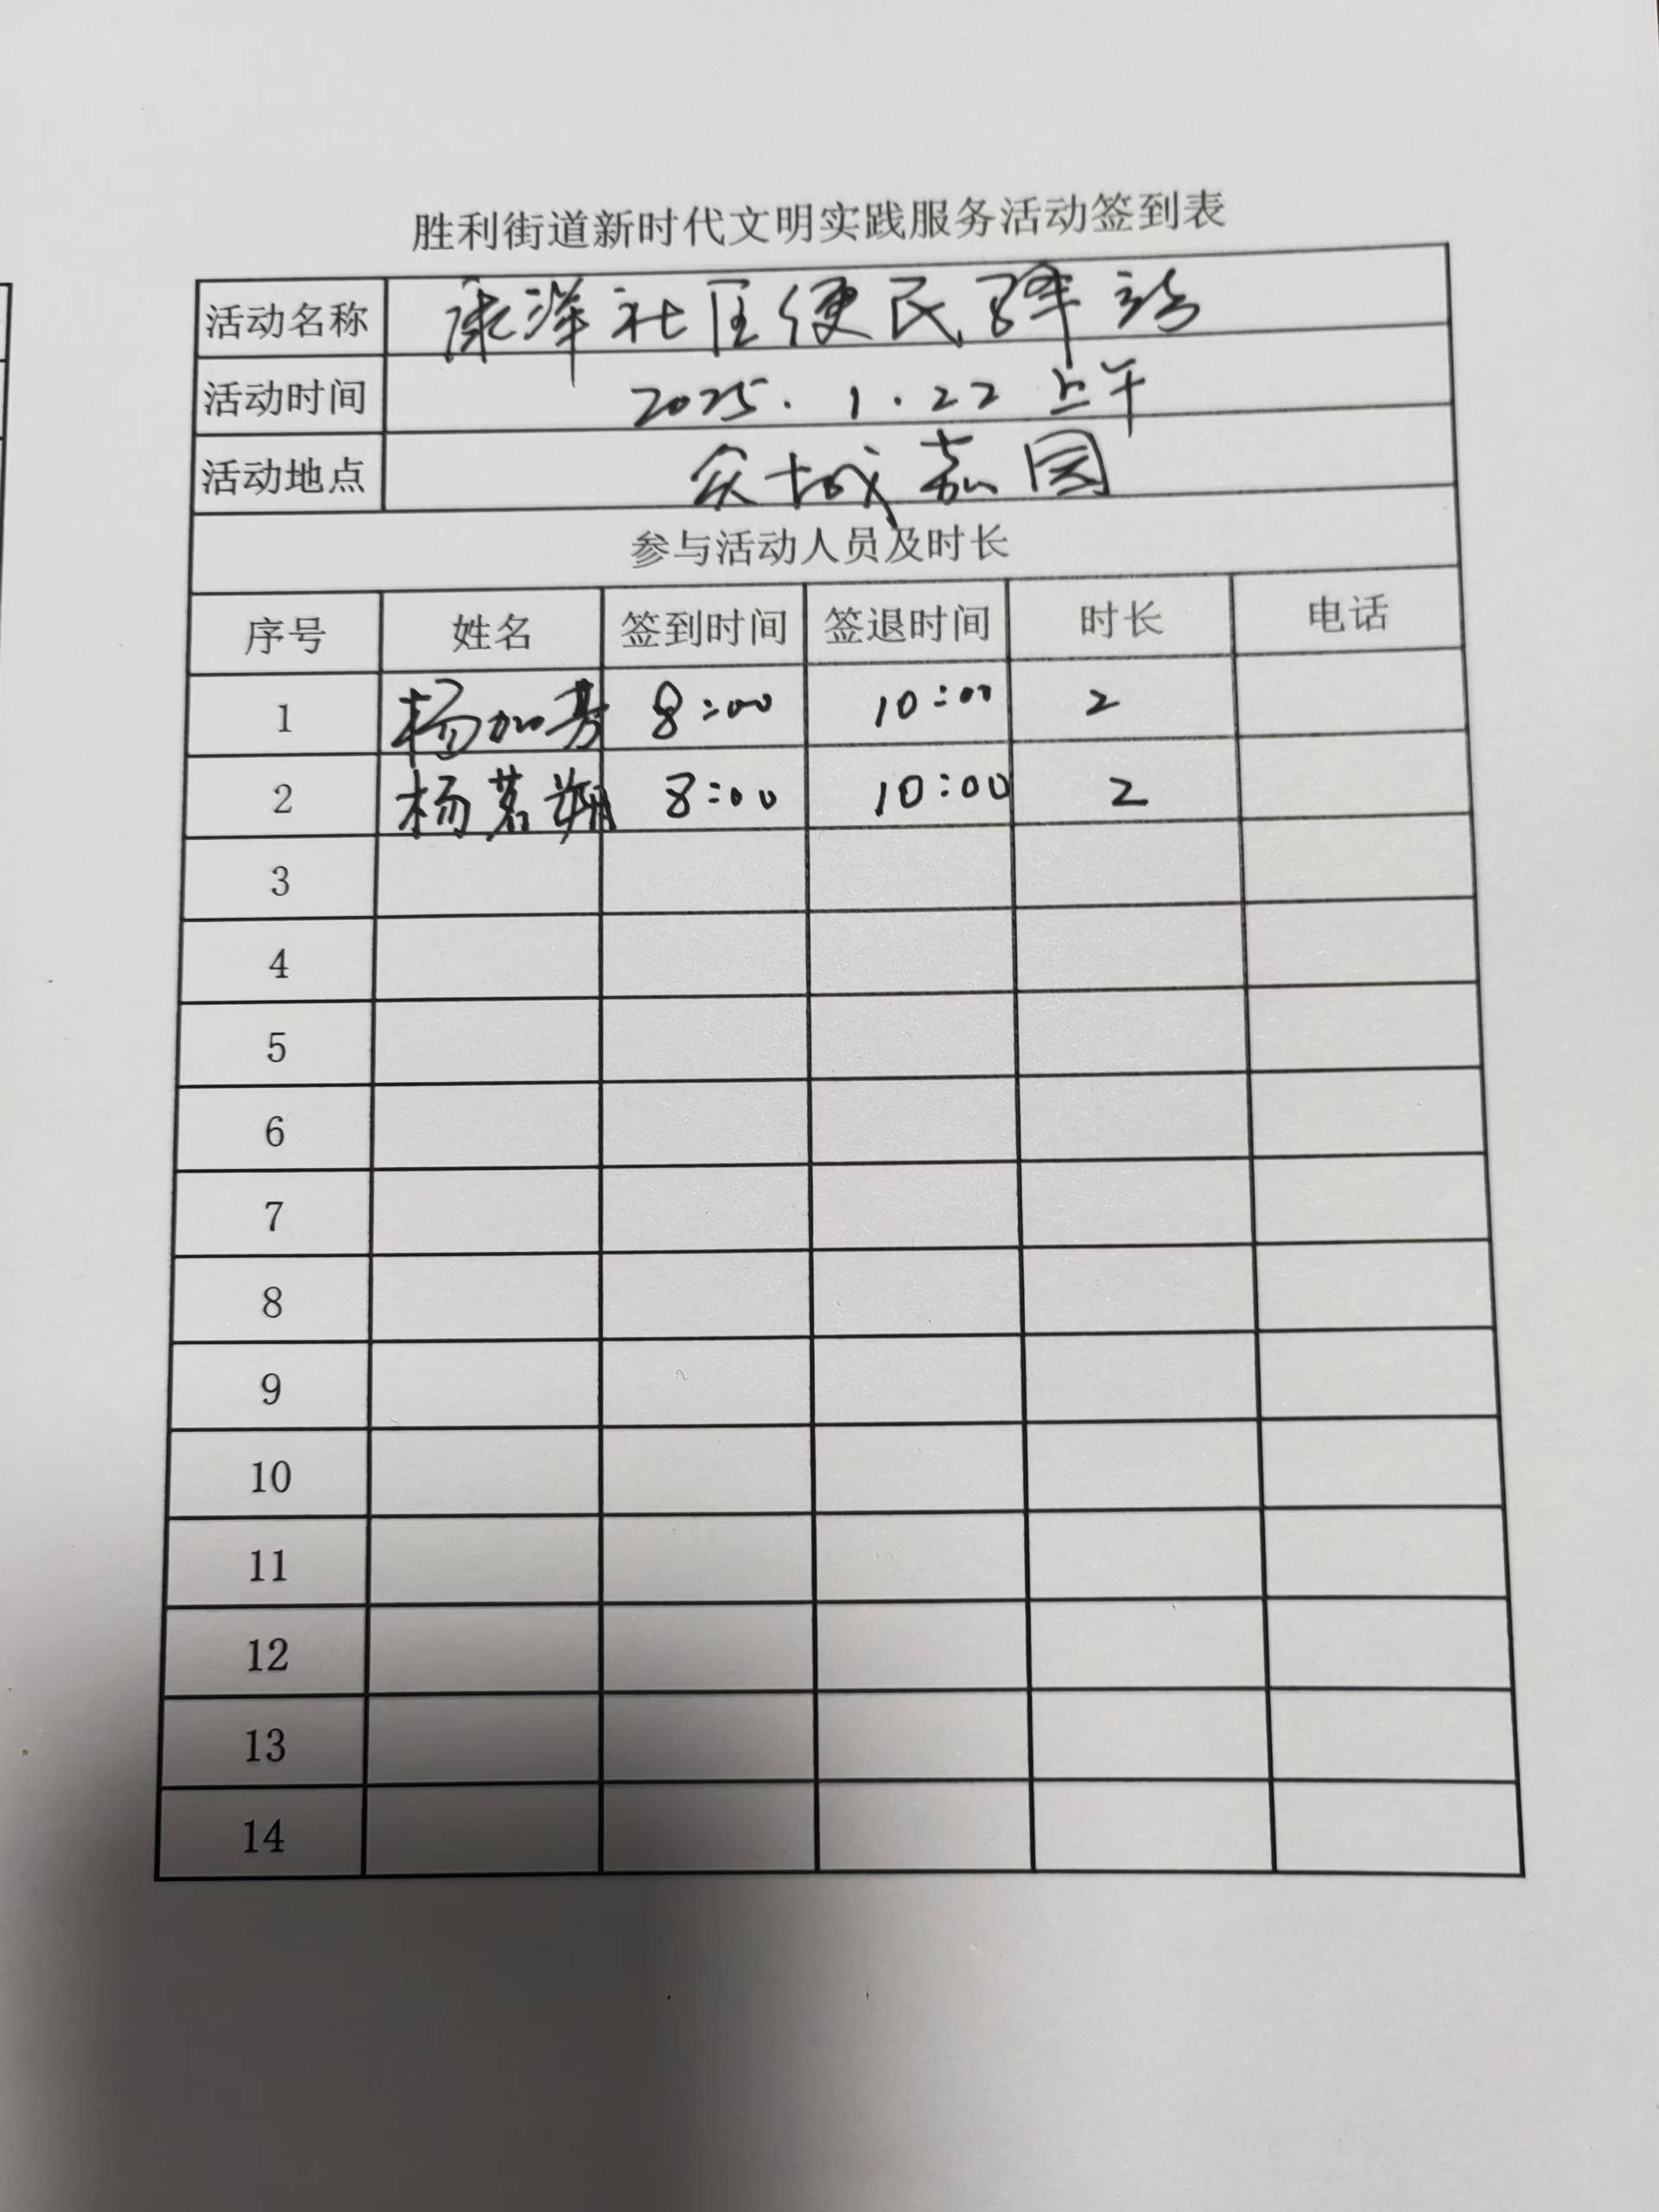 胜利街道新时代文明实践服务活动签到表
活动名称 康洋社区便民驿站
活动时间 2025.1.22 上午
活动地点 众城嘉园
参与活动人员及时长
序号 姓名 签到时间 签退时间 时长 电话
1 杨加芳 8:00 10:00 2
2 杨茗翔 8:00 10:00 2
3
4
5
6
7
8
9
10
11
12
13
14